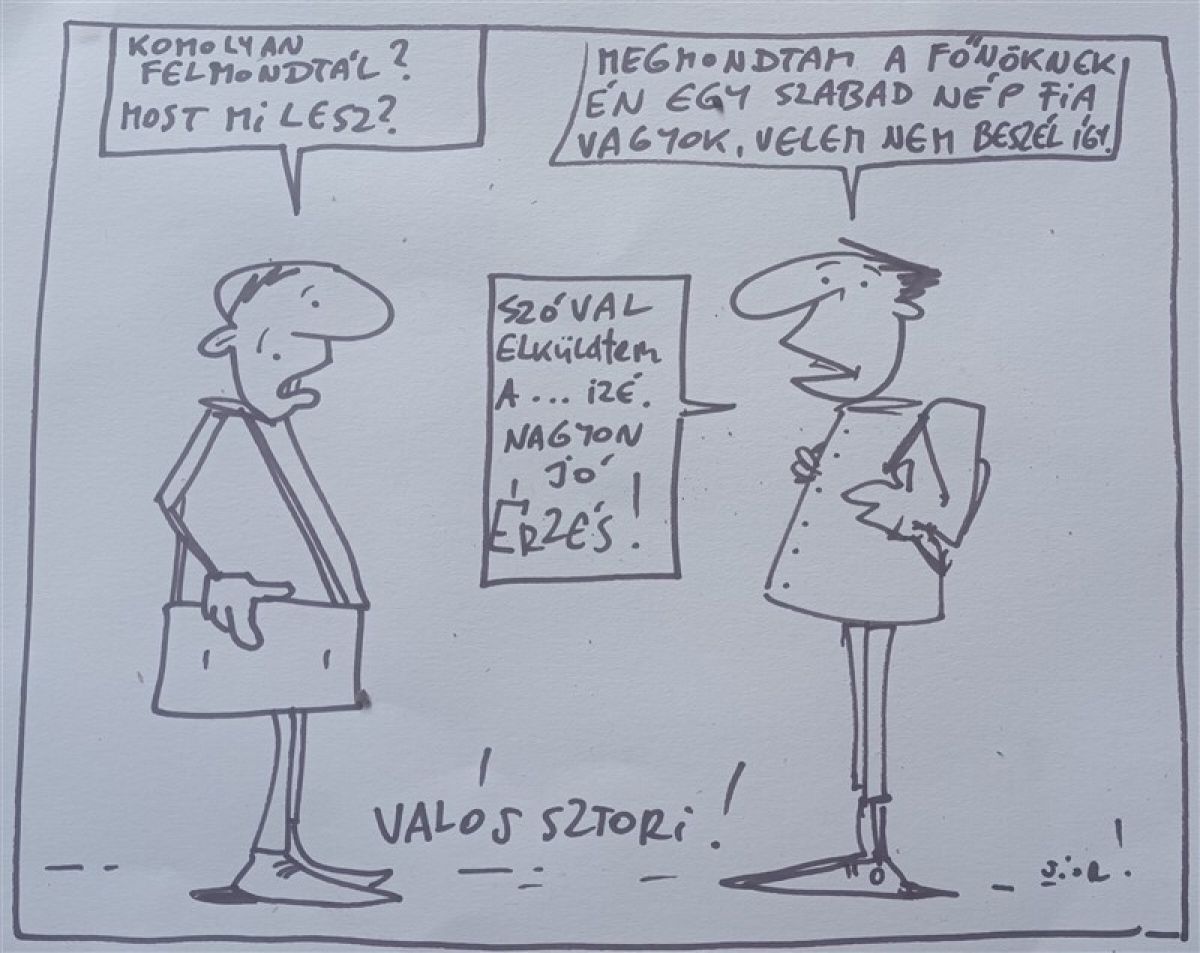 KOMOLYAN
FELMONDTÁL?
MOST Mi LESZ?
MEGMONDTAM A FŐNÖKNEK
ÉN EGY SZABAD NÉP FIA
VAGYOK, VELEM NEM BESZÉL ÍGY.
SZÓVAL
ELKÜLDtEM
A... iZÉ.
NAGYON
JÓ
ÉRZÉS!
VALÓS SZTORi!